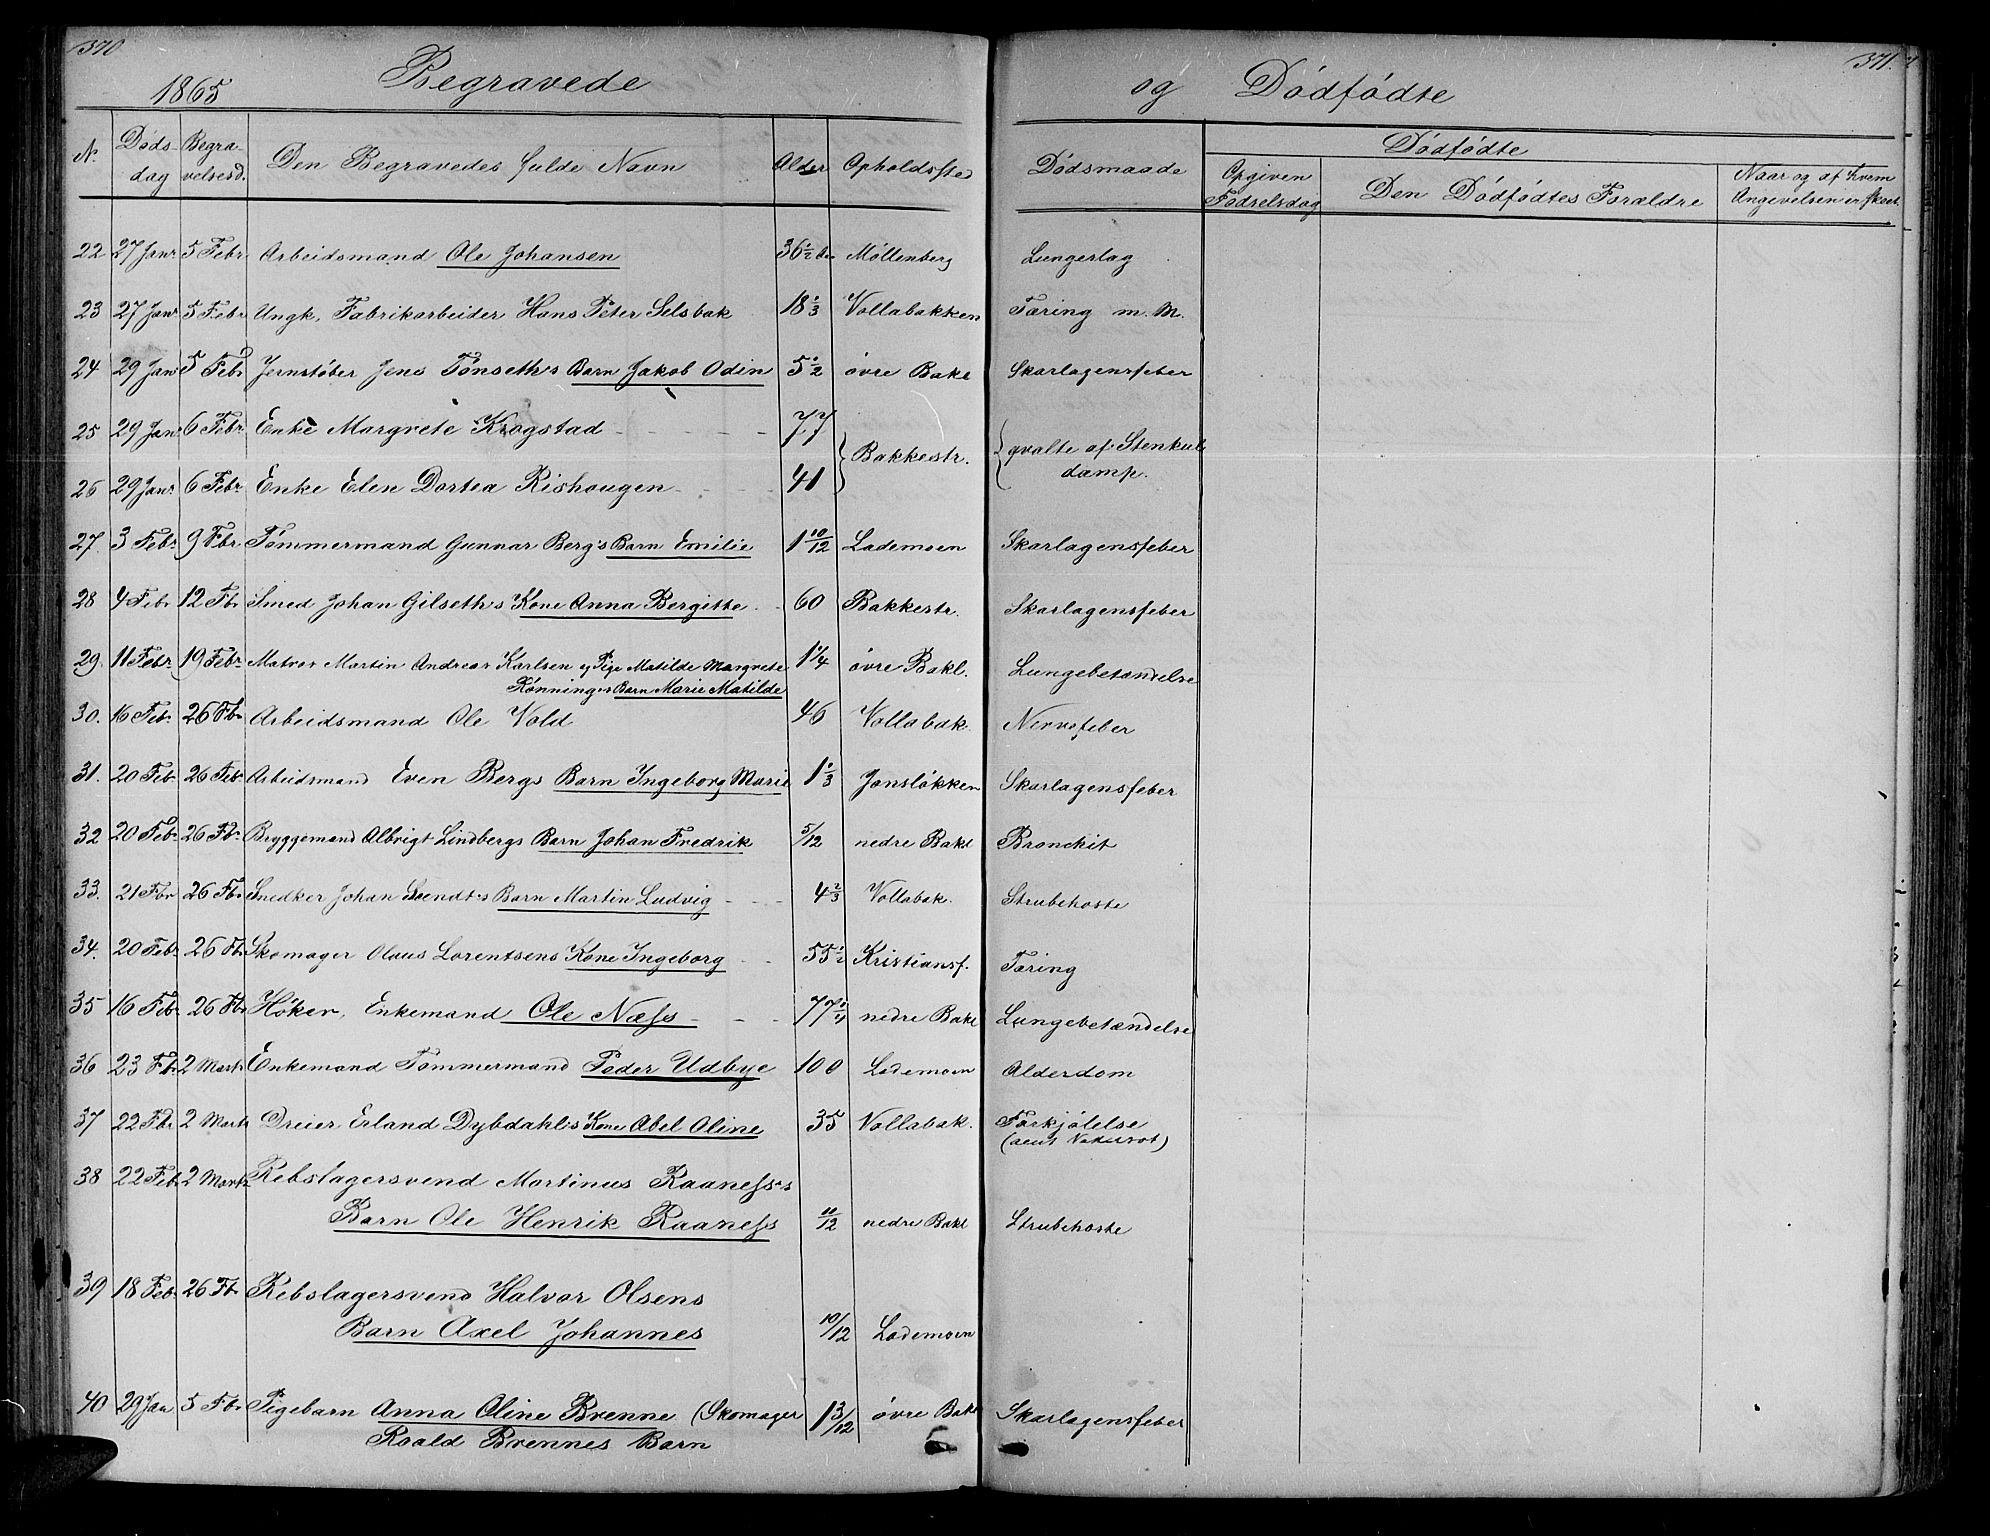 370
1865 Begravede
og Dødfødte 371.
N. Døds- dag Begra- velsesd. Den Begravedes fulde Navn Alder Opholdssted Dødsmaade Dødfødte
Opgiven Fødselsdag Den Dødfødtes Forældre Naar og af hvem Angivelsen er skeet.
22 27 Janr 5 Febr. Arbeidsmand Ole Johansen 36 1/2 Møllenberg Lungeslag
23 27 Janr 5 Febr Ungk. Fabrikarbeider Hans Peter Selsbak 18 1/3 Vollabakken Tæring m. M.
24 29 Jan 5 Febr Jernstøber Jens Tønseth's Barn Jakob Odin 5 1/2 øvre Bakl Skarlagensfeber
25 29 Jan 6 Febr. Enke Margrete Krogstad 77 Bakkestr. qvalte af Stenkul
26 29 Janr 6 Febr Enke Elen Dortea Rishougen 41 damp.
27. 3 Febr 9 Fbr. Tømmermand Gunnar Berg's Barn Emilie 1 10/12 Lademoen Skarlagensfeber
28 4 Febr 12 Fbr Smed Johan Gilseth's Kone Anna Bergitte 60 Bakkestr. Skarlagensfeber
29. 11 Febr 19 Febr. Matros Martin Andreas Karlsen og Pige Matilde Margrete 1 1/4 øvre Bakl. Lungebetændelse
Rønning's Barn Marie Matilde
30. 16 Febr. 26 Fbr Arbeidsmand Ole Vold 46 Vollabak. Nervefeber
31. 20 Feb. 26 Feb. Arbeidsmand Even Bergs Barn Ingeborg Marie 1 1/3 Jonsløkken Skarlagensfeber
32 20 Feb. 26 Fbr. Bryggemand Albrigt Lindbergs Barn Johan Fredrik 5/12 nedre Bakl Bronchit
33. 21 Fbr 26 Fbr Snedker Johan Sundt's Barn Martin Ludvig 4 2/3 Vollabak. Strubehoste
34. 20 Febr. 26 Fbr Skomager Olaus Lorentsens Kone Ingeborg 55 1/2 Kristiansf. Tæring
35 16 Febr 26 Fbr Høker, Enkemand Ole Næss 77 1/4 nedre Bakl Lungebetændelse
36 23 Fbr 2 Marts Enkemand Tømmermand Peder Udbye 100 Lademoen Alderdom
37 22 Fbr 2 Marts Dreier Erland Dybdahl's Kone Abel Oline 35 Vollabak. Forkjølelse
38 22 Feb 2 Marts Rebslagersvend Martinus Raaness's
Barn Ole Henrik Raaness 11/12 nedre Bakl Strubehoste
39 18 Feb. 26 Fbr Rebslagersvend Halvor Olsens
Barn Axel Johannes 10/12 Lademoen
40 29 Jan 5 Fbr Pigebarn Anna Oline Brenne (Skomager 1 3/12 øvre Bakl Skarlagensfeber
Roald Brennes Barn